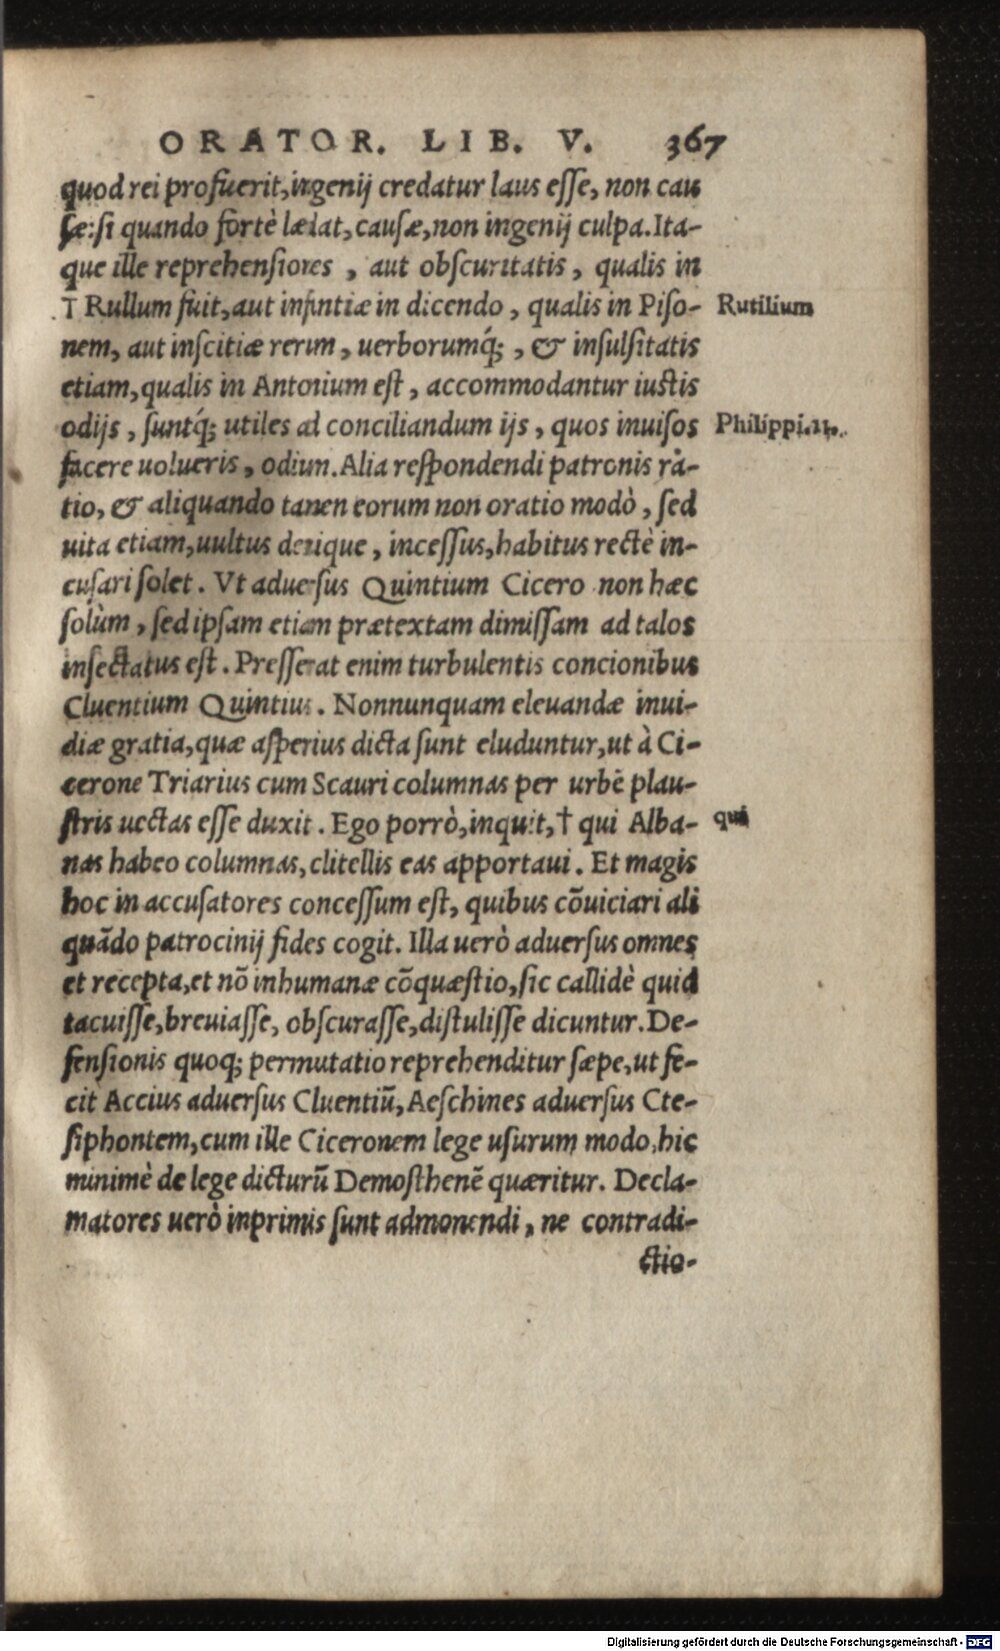 ORATOR. LIB. V. 367
quod rei profuerit, ingenij credatur laus esse, non cau
sæ: si quando fortè lædat, causæ, non ingenij culpa. Ita-
que ille reprehensiones, aut obscuritatis, qualis in
† Rullum fuit, aut infantiæ in dicendo, qualis in Piso-
Rutilium
nem, aut inscitiæ rerum, uerborumq́;, & insulsitatis
etiam, qualis in Antonium est, accommodantur iustis
odijs, suntq́; utiles ad conciliandum ijs, quos inuisos
Philippi.
facere uolueris, odium. Alia respondendi patronis ra-
tio, & aliquando tamen eorum non oratio modò, sed
uita etiam, uultus denique, incessus, habitus rectè in-
cusari solet. Vt aduersus Quintium Cicero non hæc
solùm, sed ipsam etiam prætextam dimissam ad talos
insectatus est. Presserat enim turbulentis concionibus
Cluentium Quintius. Nonnunquam eleuandæ inui-
diæ gratia, quæ asperius dicta sunt eluduntur, ut à Ci-
cerone Triarius cum Scauri columnas per urbē plau-
stris uectas esse duxit. Ego porrò, inquit, † qui Alba-
qui
nas habeo columnas, clitellis eas apportaui. Et magis
hoc in accusatores concessum est, quibus cōuiciari ali
quādo patrocinij fides cogit. Illa uerò aduersus omnes
et recepta, et nō inhumanæ cōquæstio, sic callidè quid
tacuisse, breuiasse, obscurasse, distulisse dicuntur. De-
fensionis quoq; permutatio reprehenditur sæpe, ut fe-
cit Accius aduersus Cluentiū, Aeschines aduersus Cte-
siphontem, cum ille Ciceronem lege usurum modo, hic
minimè de lege dicturū Demosthenē quæritur. Decla-
matores uerò inprimis sunt admonendi, ne contradi-
ctio-
Digitalisierung gefördert durch die Deutsche Forschungsgemeinschaft - DFG